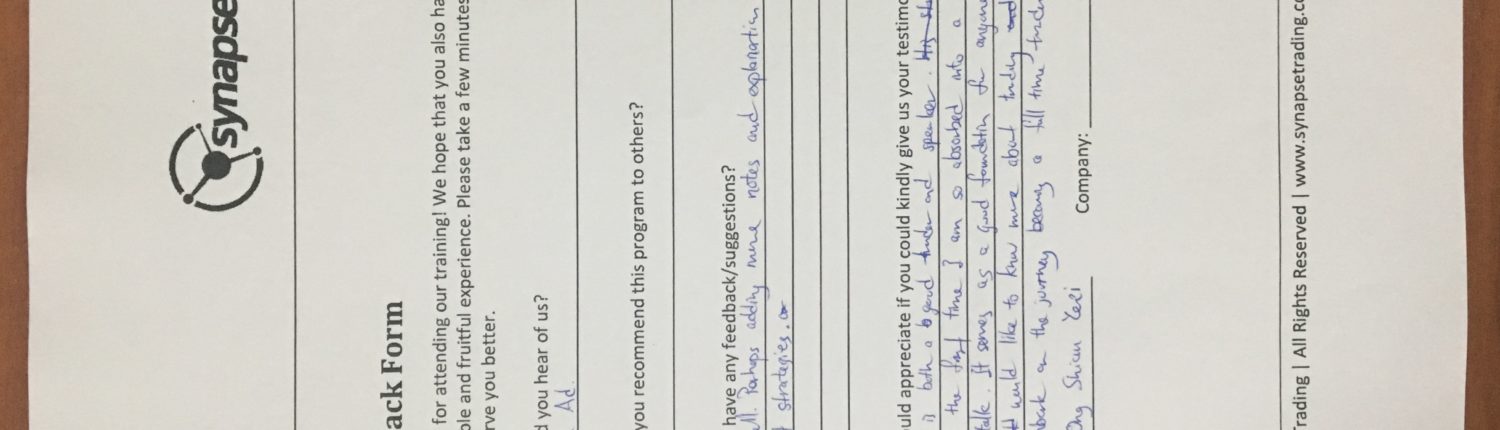 synapse
ack Form
for attending our training! We hope that you also ha
ole and fruitful experience. Please take a few minutes
rve you better.
d you hear of us?
Ad.
you recommend this program to others?
have any feedback/suggestions?
ll. Perhaps adding more notes and explanation
strategies.
uld appreciate if you could kindly give us your testimo
is both a good trader and speaker.
the first time I am so absorbed into a
talk. It serves as a good foundation for anyone
would like to know more about trading and
mbark on the journey becoming a full time trader
Ong Shiau Company:
Trading | All Rights Reserved | www.synapsetrading.co